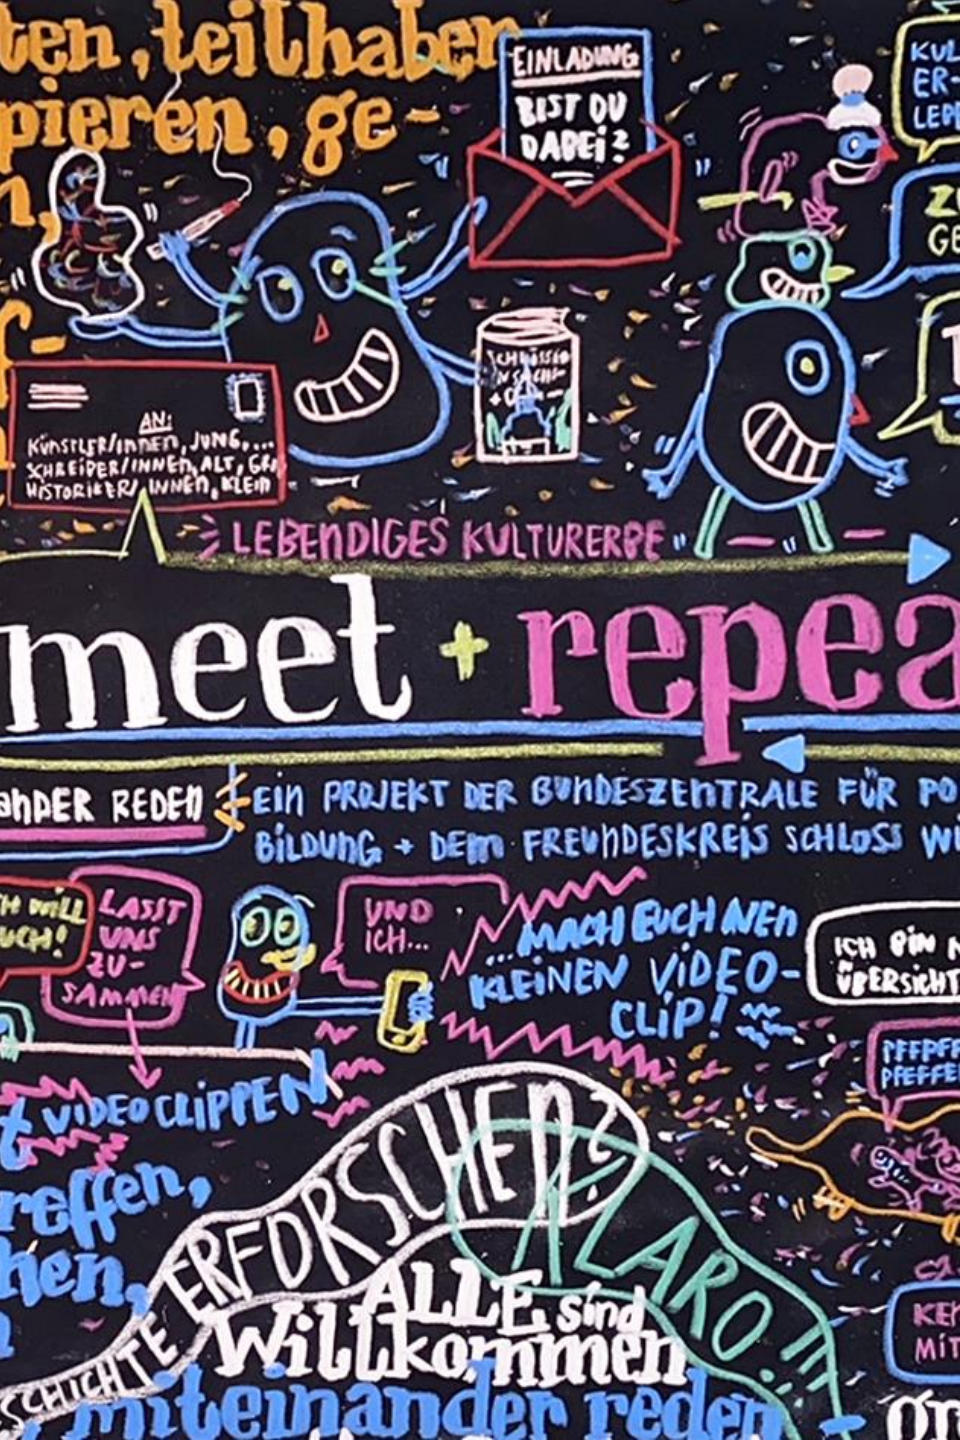 ten, teilhaben
pieren, ge-
n,
EINLADUNG
BIST DU
DABEI?
KUL
ER-
LEB
ZU
GE
f-
AN:
KÜNSTLER/INNEN, JUNG,...
SCHREIBER/INNEN, ALT, GR
HISTORIKER/INNEN, KLEIN
LEBENDIGES KULTURERBE
meet + repea
ANDER REDEN
EIN PROJEKT DER BUNDESZENTRALE FÜR PO
BILDUNG + DEM FREUNDESKREIS SCHLOSS WI
CH WILL
UCH!
LASST
UNS
ZU-
SAMMEN
UND
ICH...
...MACH EUCH NEN
KLEINEN VIDEO-
CLIP!
ICH BIN N
ÜBERSICHT
PFFPFF
PFEFFE
t VIDEOCLIPPEN
reffen,
hen,
ERFORSCHEN?
KLARO!!
SCHICHTE
ALLE sind
Willkommen
miteinander reden
KEN
MIT
on